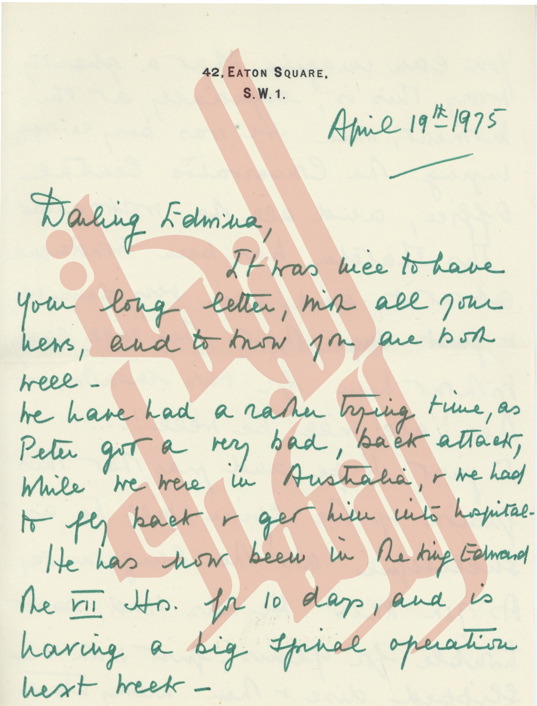 42, EATON SQUARE,
S.W.1.
April 19th 1975
Darling Edwina,
It was nice to have
your long letter, with all your
news, and to know you are both
well -
We have had a rather trying time, as
Peter got a very bad, back attack,
while we were in Australia, & we had
to fly back & get him into hospital-
He has now been in the King Edward
the VII Hos. for 10 days, and is
having a big spinal operation
next week -